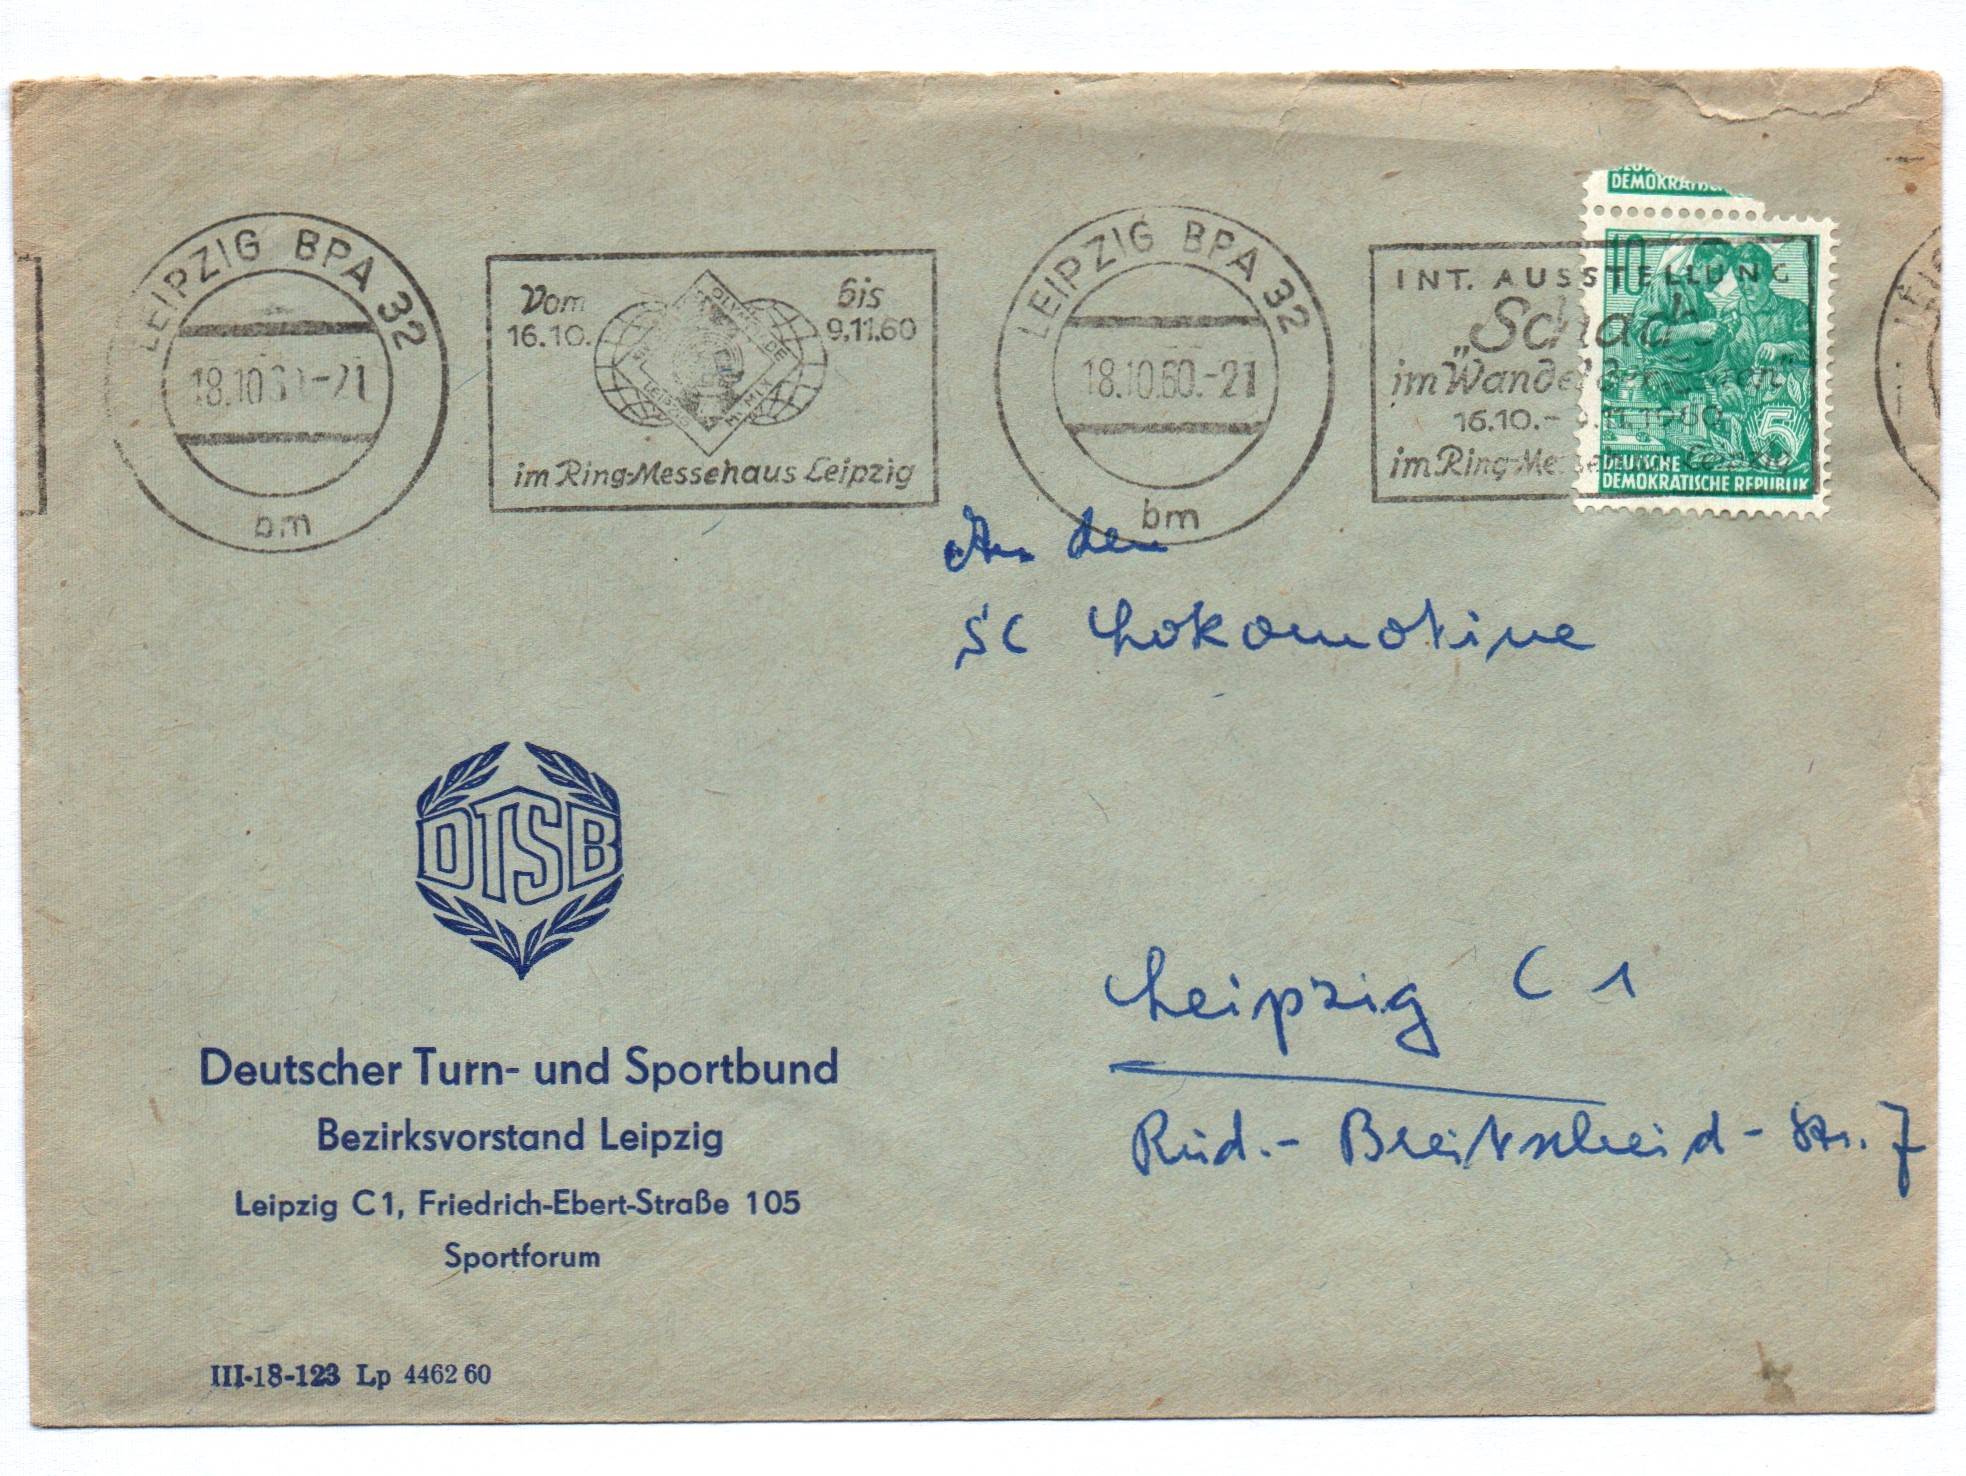 DEMOKRATISCHE
LEIPZIG BPA 32
18.10.60.-21
bm
Vom 16.10. bis 9.11.60
LEIPZIG
im Ring-Messehaus Leipzig
LEIPZIG BPA 32
18.10.60.-21
bm
INT. AUSSTELLUNG
„Schach
im Wandel der Zeiten"
16.10.-9.11.1960
im Ring-Messehaus Leipzig
10
DEUTSCHE
DEMOKRATISCHE REPUBLIK
An den
SC Lokomotive
Leipzig C 1
Rud.-Breitscheid-Str. 7
DTSB
Deutscher Turn- und Sportbund
Bezirksvorstand Leipzig
Leipzig C1, Friedrich-Ebert-Straße 105
Sportforum
III-18-123 Lp 4462 60